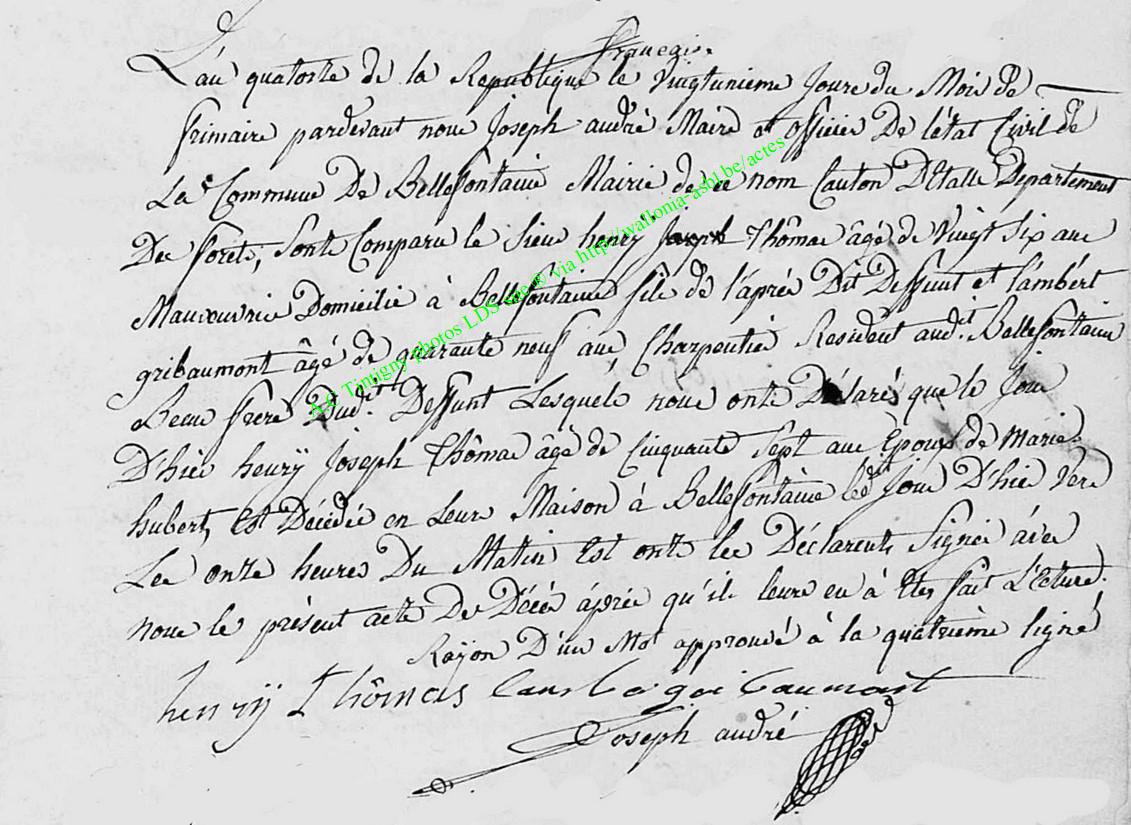 française
L'an quatorze de la Republique le vingtunieme Jours du Mois de
frimaire pardevant nous Joseph andré Maire et officier De l'état Civil de
La Commune De Bellefontaine Mairie de ce nom Canton D'Etalle Departement
Des forets, sont Comparu le sieur henry Joseph Thômas âgé de Vingt Six ans
Manouvrie Domicilié à Bellefontaine fils de l'après Dit Deffunt et Lambért
gribaumont âgé de quarante neuf ans Charpentié Resident aud.it Bellefontaine
Beau frère Dud.it Deffunt Lesquels nous onts Déclarés que le Jour
D'hier henrÿ Joseph Thômas âgé de Cinquante Sept ans Epoux de Marie
hubert, Est Décédé en Leurs Maison à Bellefontaine ledit Jour D'hier vers
Les onze heures Du Matin Est onts les Déclarents Signés avec
nous le présent acte De Décès áprès qu'ils leurs en à Etés fait L'Ecture.
Raÿon D'un Mot approuvé à la quatrième ligne
henrÿ Thômas Lambert gribaumont
Joseph andré
A.G. Tintigny photos LDS © via http://wallonia-asbl.be/actes